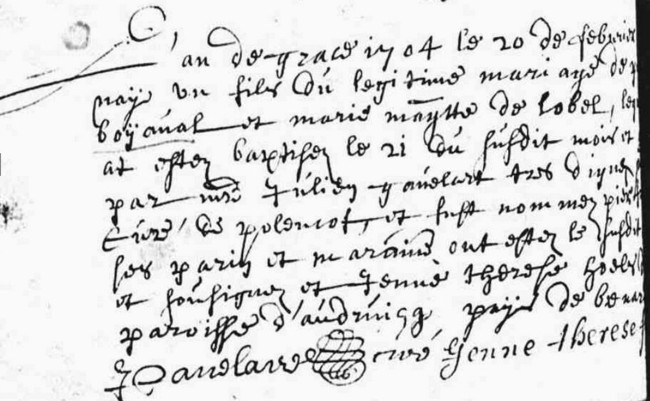 L'an de grace 1704 le 20 de febvrier
nay un fils du legitime mariage de
boyaval et marie magtte de lobel,
at estez baptisez le 21 du susdit mois et
par mre Julien gavelart tres digne
Curé de polencot, et fust nommez pier
ses parin et maraine ont estez le susdit
et sousignez et Jenne therese
paroisse d'audruicq payis de
J Gavelart curé Jenne therese